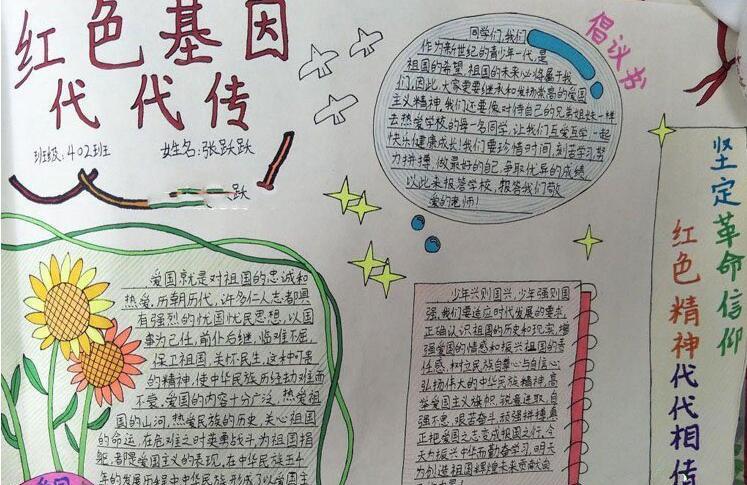 红色基因
代代传
班级:402班 姓名:张跃跃
跃
倡议书
同学们,我们
作为新世纪的青少年一代,是
祖国的希望,祖国的未来必将属于我
们,因此,大家更要继承和发扬崇高的爱国
主义精神,我们还要像对待自己的兄弟姐妹一样
去热爱学校的每一名同学,让我们互爱互学,一起
快乐健康成长!我们要珍惜时间,刻苦学习,努
力拼搏,做最好的自己,争取优异的成绩,
以此来报答学校,报答我们敬
爱的老师!
坚定革命信仰
红色精神代代相传
爱国就是对祖国的忠诚和
热爱,历朝历代,许多仁人志士都具
有强烈的忧国忧民思想,以国
事为己任,前仆后继,临难不屈,
保卫祖国,关怀民生,这种可贵
的精神,使中华民族历经劫难而
不衰,爱国的内容十分广泛,热爱祖
国的山河,热爱民族的历史,关心祖国
的命运,在危难之时英勇战斗,为祖国捐
躯,都是爱国主义的表现,在中华民族五千
年的发展历程中,中华民族形成了以爱国主
少年兴则国兴,少年强则国
强,我们要适应时代发展的要求,
正确认识祖国的历史和现实,增
强爱国的情感和振兴祖国的责
任感,树立民族自尊心与自信心;
弘扬伟大的中华民族精神,高
举爱国主义旗帜,锐意进取,自
强不息,艰苦奋斗,顽强拼搏,真
正把爱国之志变成报国之行,今
天为振兴中华而勤奋学习,明天
为创造祖国辉煌未来贡献自